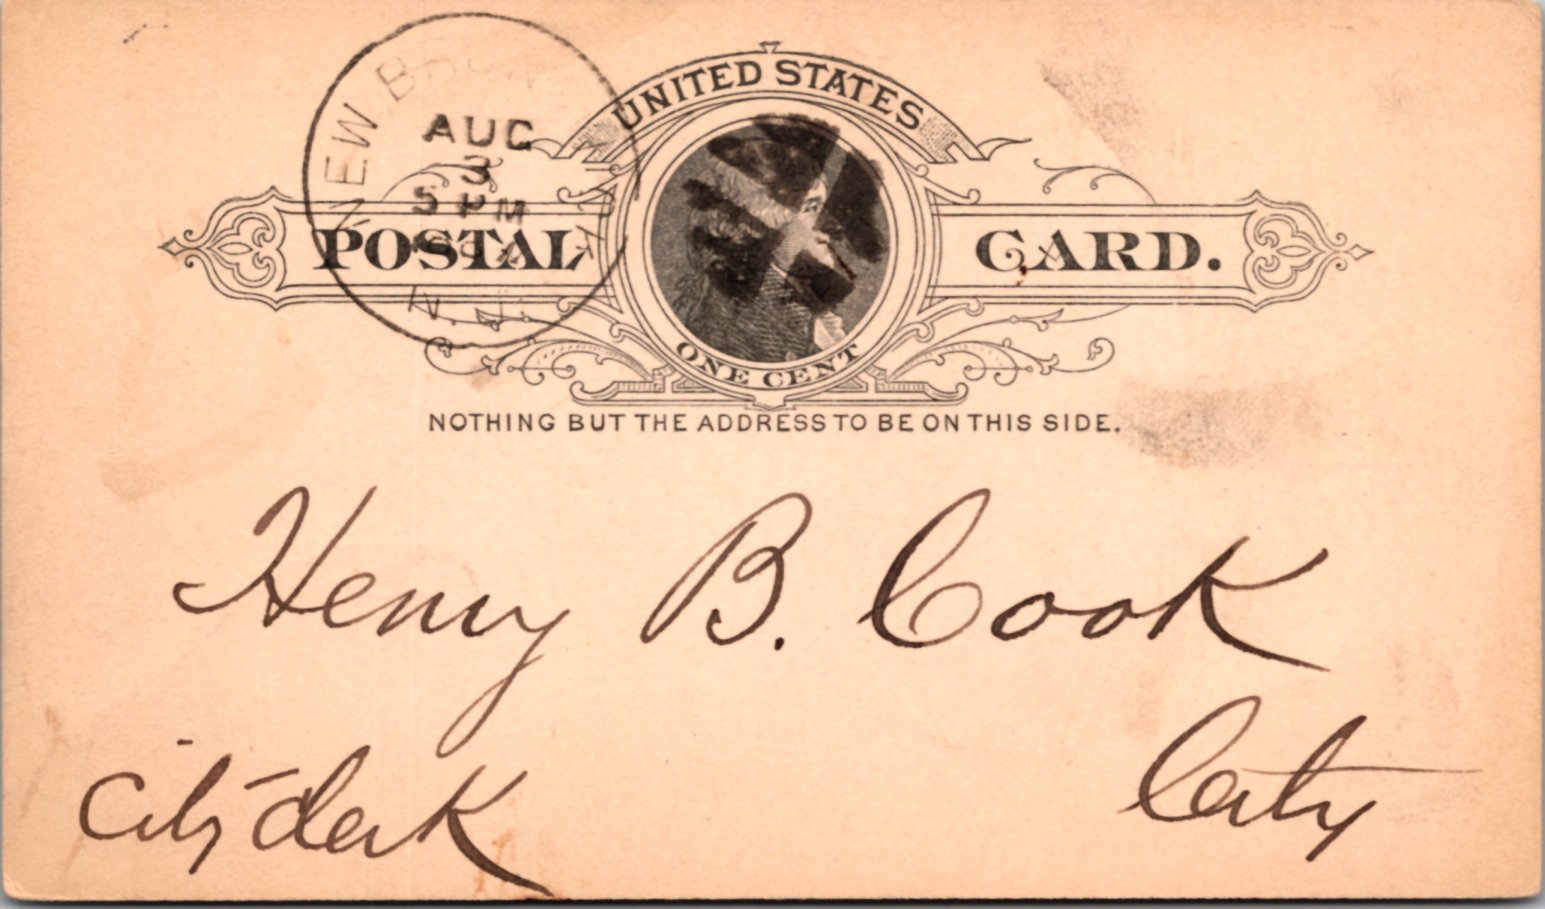 UNITED STATES
NEW
AUG
3
5 PM
N.J.
POSTAL CARD.
ONE CENT
NOTHING BUT THE ADDRESS TO BE ON THIS SIDE.
Henry B. Cook
City
City Clerk